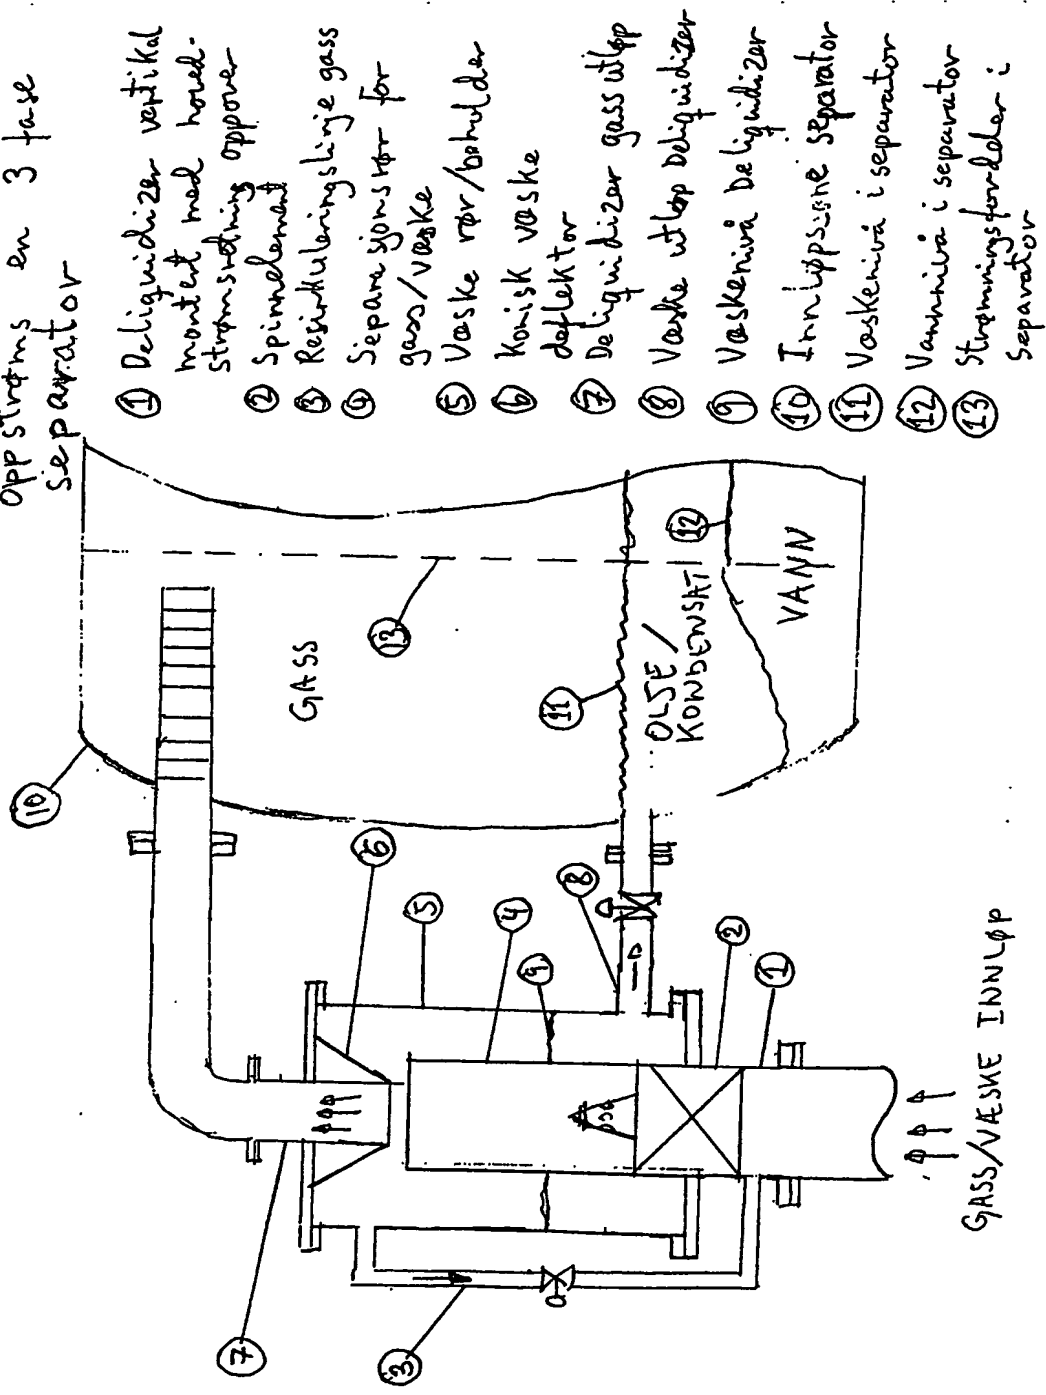 oppstrøms en 3 fase
separator
① Deliquidizer vertikal
montert med hoved-
strømsretning oppover
② Spinnelement
③ Resirkuleringslinje gass
④ Separasjonsrør for
gass/væske
⑤ Væske rør/beholder
⑥ Konisk væske
deflektor
⑦ Deliquidizer gass utløp
⑧ Væske utløp Deliquidizer
⑨ Væskenivå Deliquidizer
⑩ Innløpsside separator
⑪ Væskenivå i separator
⑫ Vannivå i separator
⑬ Strømningsfordeler i
separator
10
GASS
13
11
OLJE/
KONDENSAT
12
VANN
6
5
4
9
8
2
1
7
3
GASS/VÆSKE INNLØP